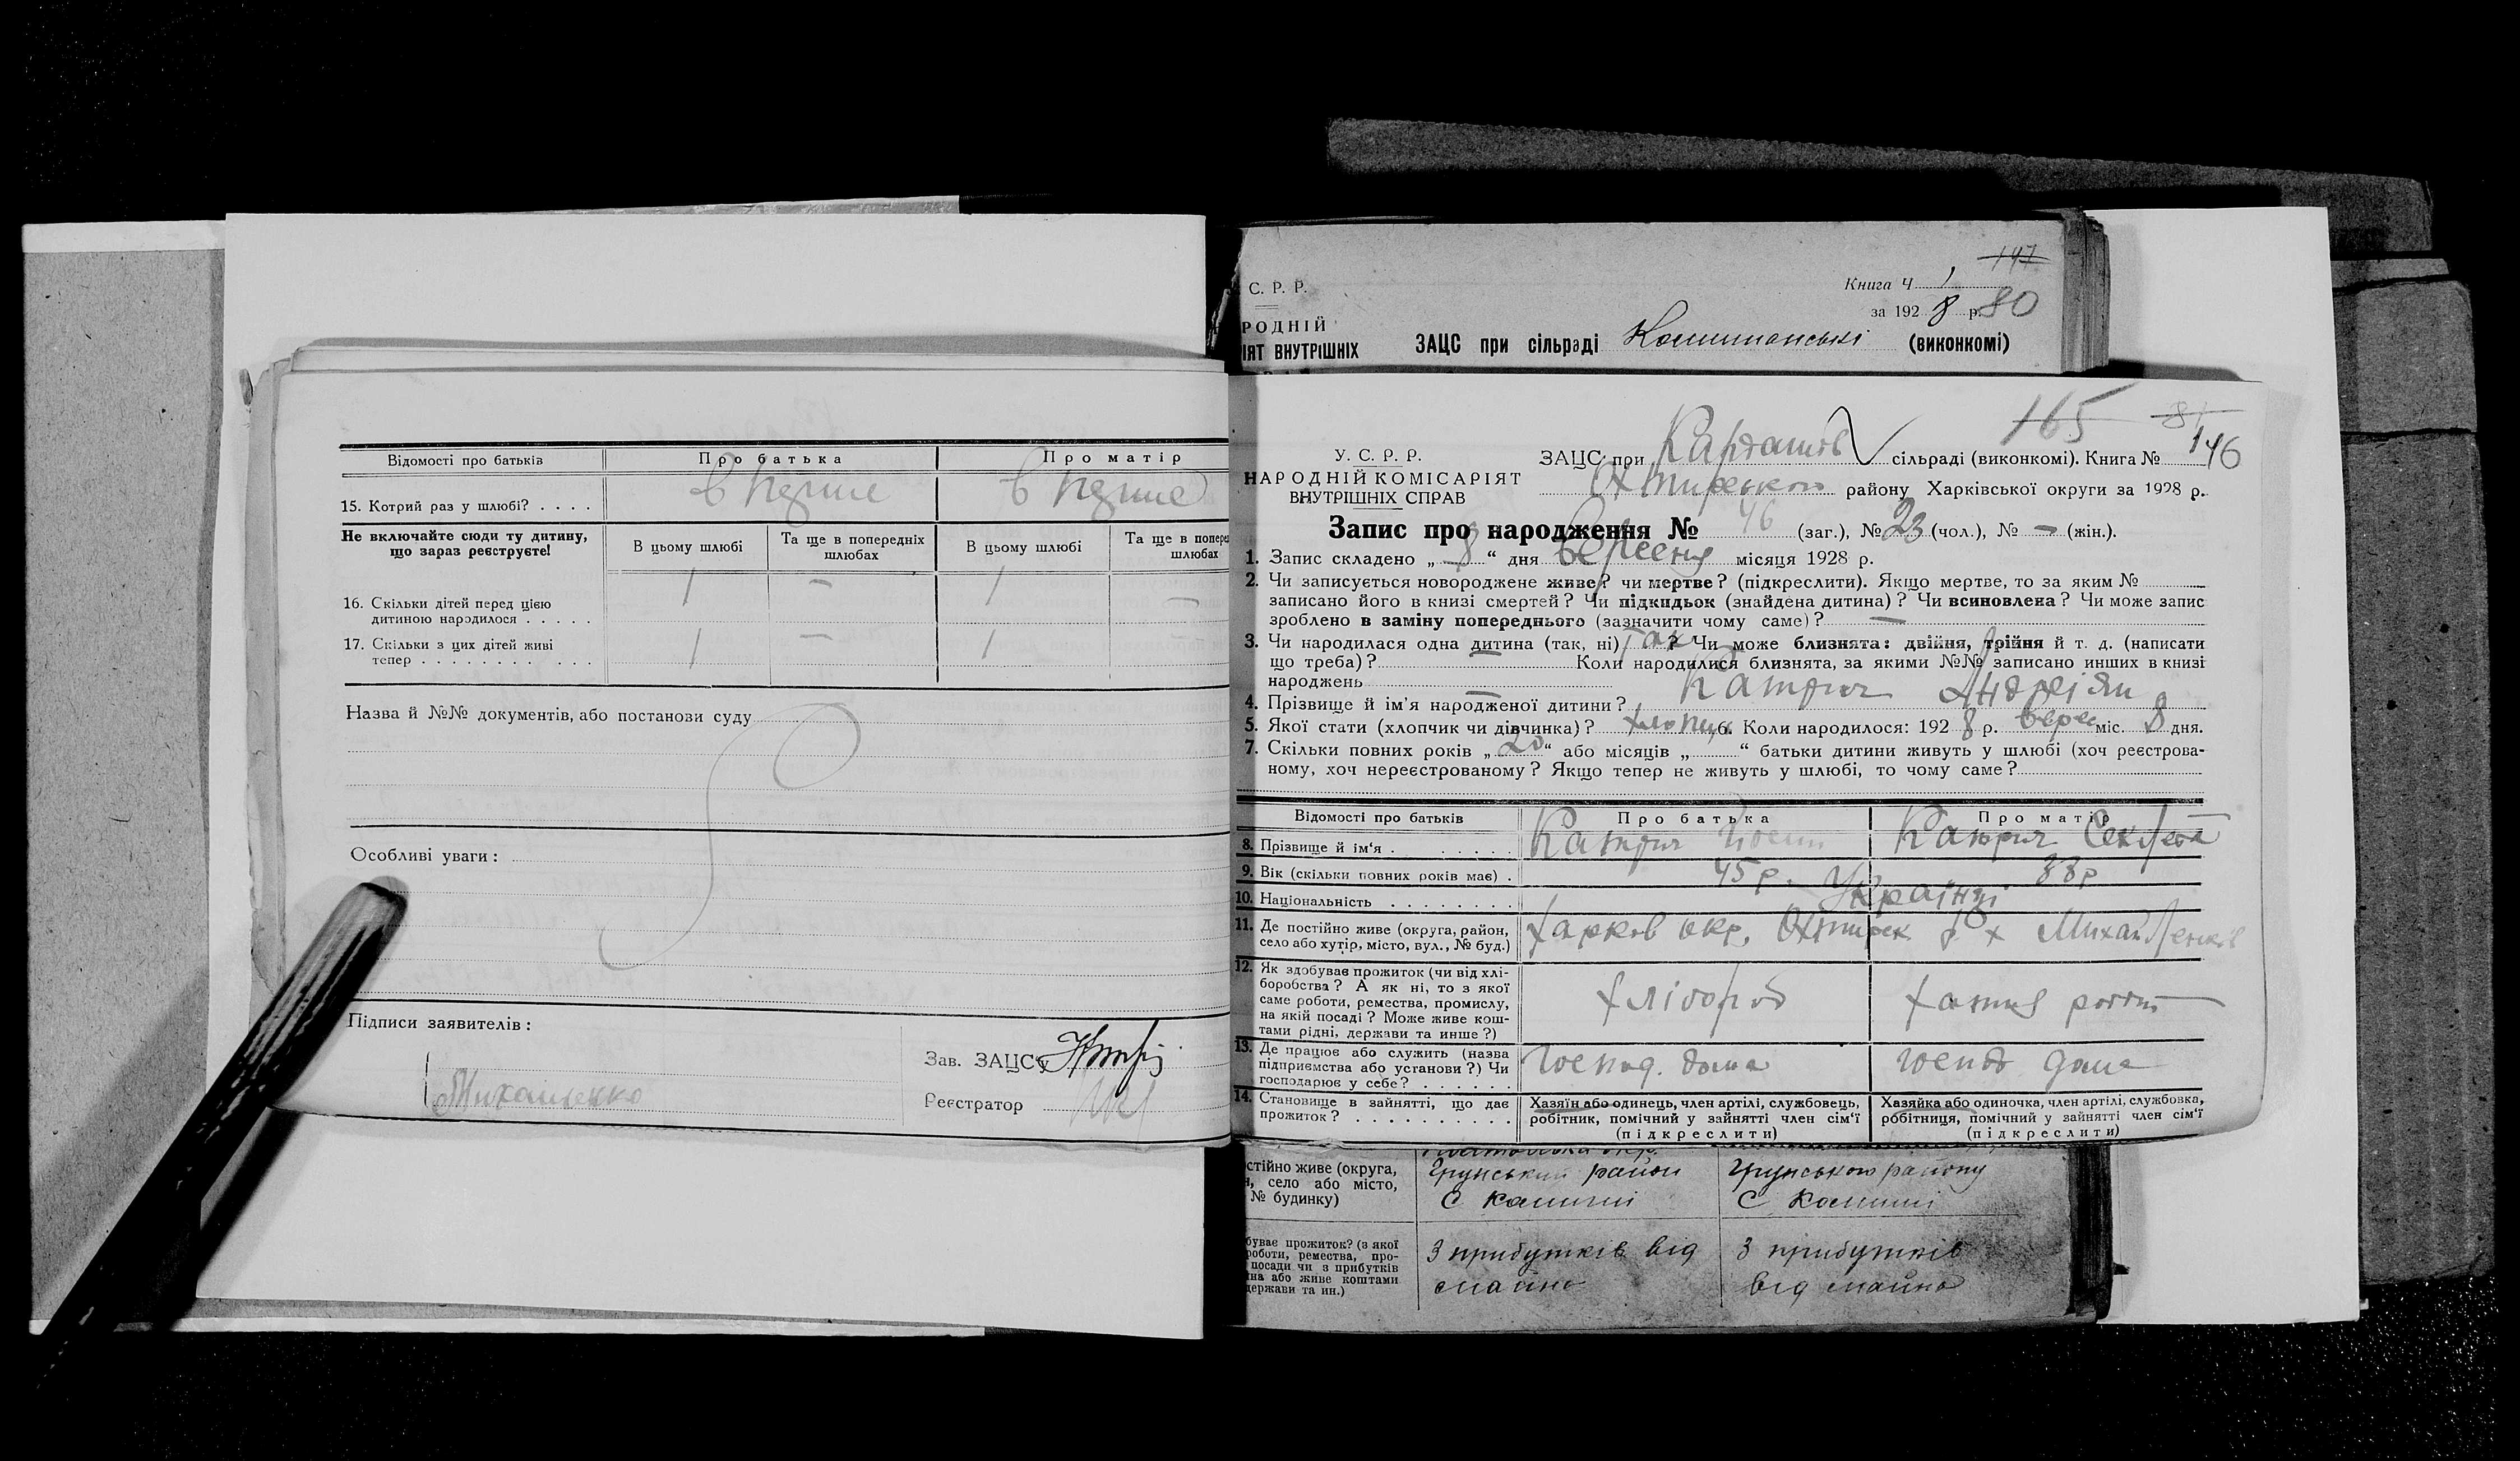 Відомості про батьків
Про батька
Про матір
15. Котрий раз у шлюбі? . . . .
в перше
в перше
Не включайте сюди ту дитину,
що зараз реєструєте!
В цьому шлюбі
Та ще в попередніх
шлюбах
В цьому шлюбі
Та ще в попере
шлюбах
16. Скільки дітей перед цією
дитиною народилося . . . . .
1 — 1 —
17. Скільки з цих дітей живі
тепер . . . . . . . . . . .
1 — 1
Назва й №№ документів, або постанови суду
Особливі уваги:
Підписи заявителів:
Зав. ЗАЦСу
Реєстратор
С. Р. Р.
147
Книга Ч 1
за 1928 р. 80
РОДНІЙ
ІЯТ ВНУТРІШНІХ
ЗАЦС при сільраді (виконкомі)
165 81
У. С. Р. Р.
НАРОДНІЙ КОМІСАРІЯТ
ВНУТРІШНІХ СПРАВ
ЗАЦС при Кардашів сільраді (виконкомі). Книга № 146
Охтирського району Харківської округи за 1928 р.
Запис про народження № 46 (заг.), № 23 (чол.), № — (жін.).
1. Запис складено „ 8 “ дня вересня місяця 1928 р.
2. Чи записується новороджене живе? чи мертве? (підкреслити). Якщо мертве, то за яким №
записано його в книзі смертей? Чи підкидьок (знайдена дитина)? Чи всиновлена? Чи може запис
зроблено в заміну попереднього (зазначити чому саме)? —
3. Чи народилася одна дитина (так, ні) так? Чи може близнята: двійня, трійня й т. д. (написати
що треба)? — Коли народилися близнята, за якими №№ записано инших в книзі
народжень —
4. Прізвище й ім'я народженої дитини? Катрич Андріян
5. Якої стати (хлопчик чи дівчинка)? хлопч 6. Коли народилося: 1928 р. верес міс. 8 дня.
7. Скільки повних років „ 20 “ або місяців „ “ батьки дитини живуть у шлюбі (хоч реєстрова-
ному, хоч нереєстрованому? Якщо тепер не живуть у шлюбі, то чому саме?
Відомості про батьків
Про батька
Про матір
8. Прізвище й ім'я . . . . . . .
Катрич
Катрич Секлета
9. Вік (скільки повних років має) .
45 р.
38 р
10. Національність . . . . . . . .
Українці
11. Де постійно живе (округа, район,
село або хутір, місто, вул., № буд.)
Харков окр. Охтирськ р х Михайленків
12. Як здобуває прожиток (чи від хлі-
боробства? А як ні, то з якої
саме роботи, ремества, промислу,
на якій посаді? Може живе кош-
тами рідні, держави та инше?)
хлібороб
хатня робот
13. Де працює або служить (назва
підприємства або установи?) Чи
господарює у себе? . . . . . .
господ. дома
госпо дома
14. Становище в зайнятті, що дає
прожиток? . . . . . . . . . .
Хазяїн або одинець, член артілі, службовець,
робітник, помічний у зайнятті член сім'ї
(підкреслити)
Хазяйка або одиночка, член артілі, службовка,
робітниця, помічний у зайнятті член сім'ї
(підкреслити)
стійно живе (округа,
н, село або місто,
№ будинку)
Грунський район
С
Грунського району
С
буває прожиток? (з якої
роботи, ремества, про-
посади чи з прибутків
йна або живе коштами
держави та ин.)
З прибутків від
майна
З прибутків
від майна